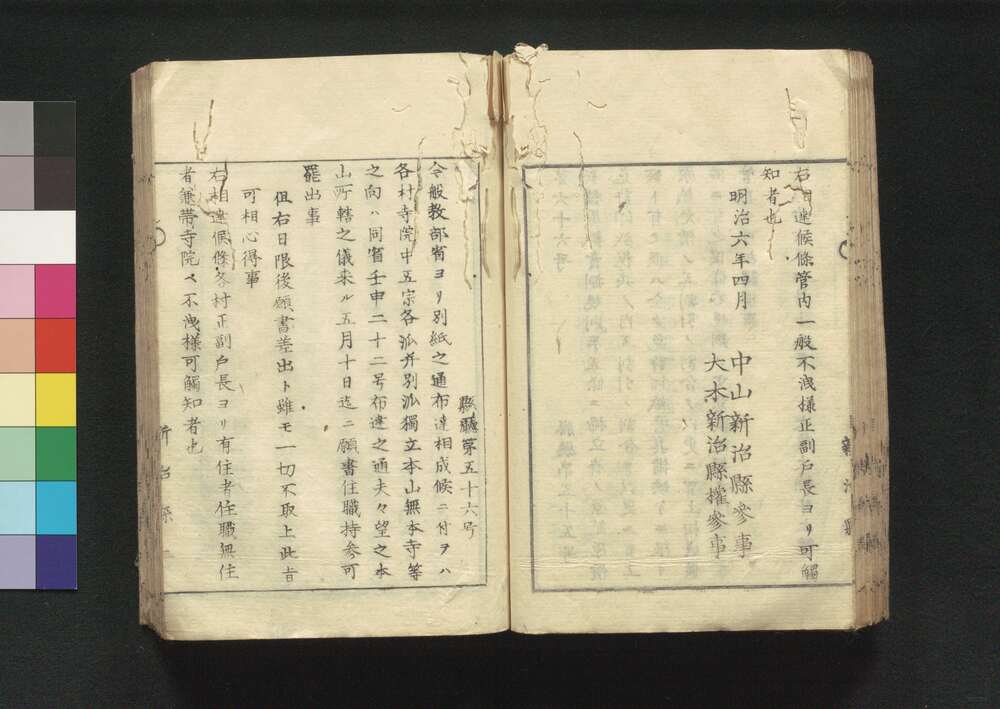 右相達候條管内一般不洩様正副戸長ヨリ可觸
知者也
明治六年四月
中山新治縣參事
大木新治縣權參事
縣廳第五十六号
今般教部省ヨリ別紙之通布達相成候ニ付ヲハ
各村寺院中五宗各派并別派獨立本山無本寺等
之向ハ同省壬申二十二号布達之通夫々望之本
山所轄之儀来ル五月十日迄ニ願書住職持参可
罷出事
但右日限後願書差出ト雖モ一切不取上此旨
可相心得事
右相達候條各村正副戸長ヨリ有住者住職無住
者兼帯寺院ヘ不洩様可觸知者也